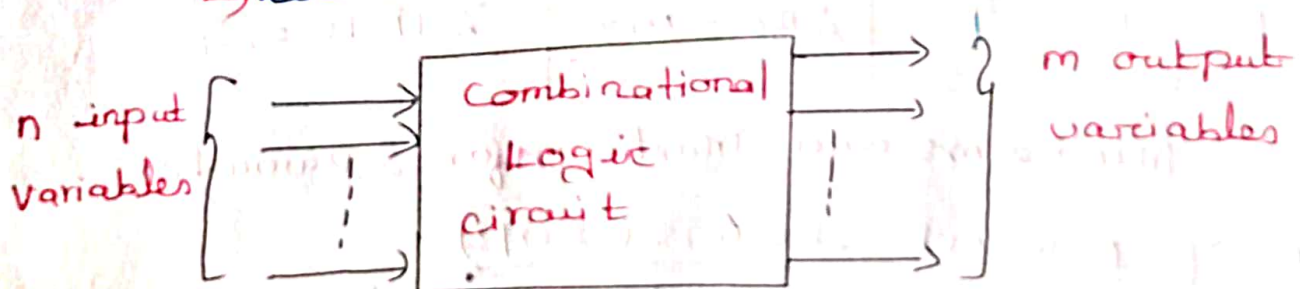 n input
variables
Combinational
Logic
circuit
m output
variables